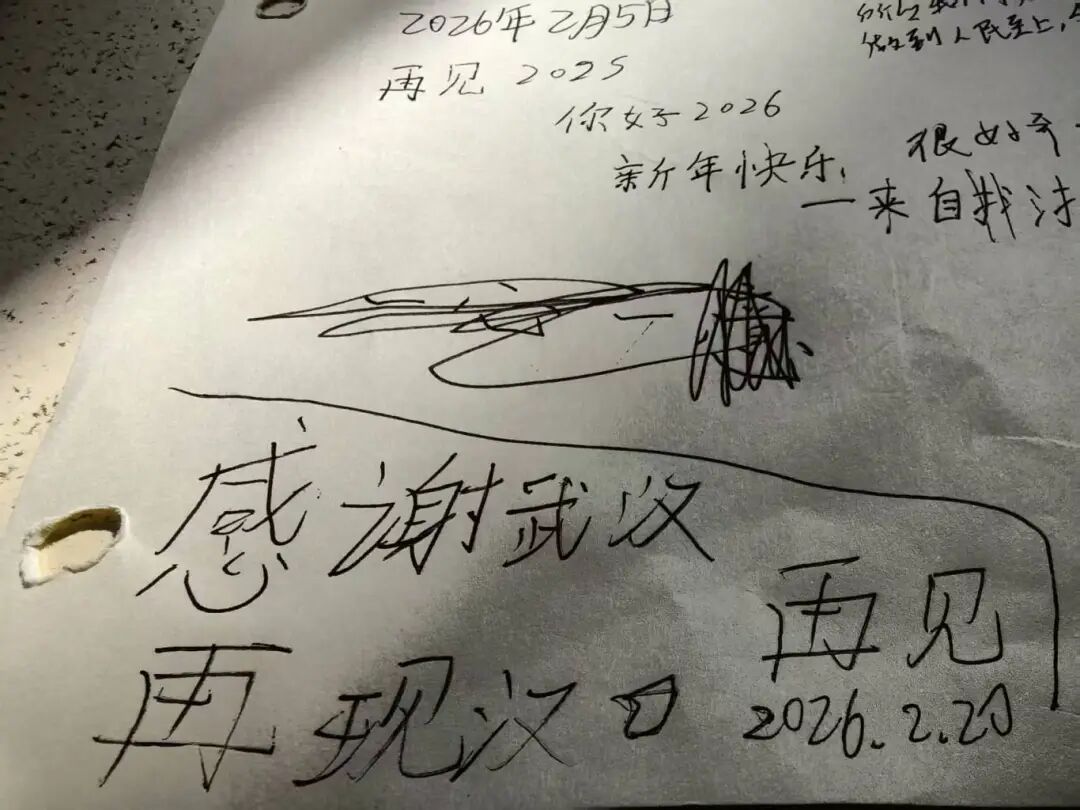 2026年2月5日
做到人民至上,
再见 2025
你好2026
新年快乐.
很好
一来自我
感谢武汉
再见
再现汉口
2026.2.20